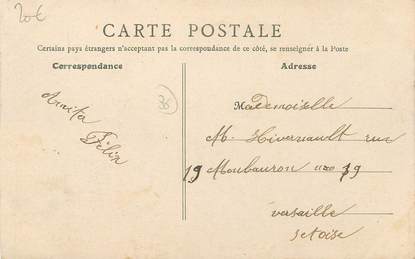 20€
CARTE POSTALE
Certains pays étrangers n'acceptant pas la correspondance de ce côté, se renseigner à la Poste
Correspondance
Adresse
Anita
Félix
35
Mademoiselle
M. Hivernault rue
19 Monbauron 19
versaille